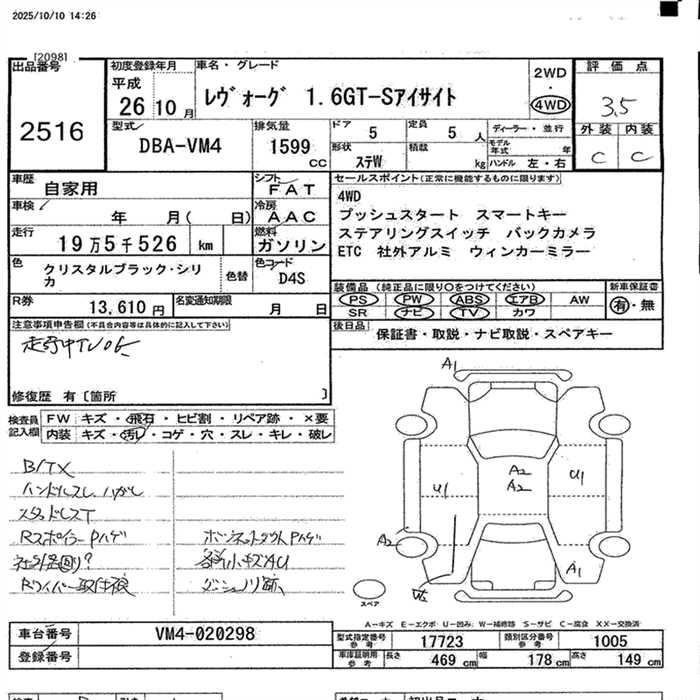 2025/10/10 14:26
[2098]
出品番号
2516
初度登録年月
平成
26 10 月
車名・グレード
レヴォーグ 1.6GT-Sアイサイト
2WD
・
4WD
評価点
3.5
外装 内装
C C
型式
DBA-VM4
排気量
1599 CC
ドア 5
定員 5 人
形状 ステW
積載 kg
ディーラー・並行
モデル年式 年
ハンドル 左・右
車歴
自家用
シフト
FAT
車検
年 月( 日)
冷房
AAC
走行
19万5千526 km
燃料
ガソリン
色
クリスタルブラック・シリカ
色替
色コード
D4S
R券
13,610 円
名変通知期限
月 日
セールスポイント(正常に機能するものに限ります)
4WD
プッシュスタート スマートキー
ステアリングスイッチ バックカメラ
ETC 社外アルミ ウィンカーミラー
装備品(純正品に限り〇をつけてください)
PS PW ABS エアB AW
SR ナビ TV カワ
新車保証書
有・無
後日品
保証書・取説・ナビ取説・スペアキー
注意事項申告欄(不具合内容等は具体的に記入して下さい)
走行中TV OK
修復歴 有〔箇所 〕
検査員記入欄
FW キズ・飛石・ヒビ割・リペア跡・×要
内装 キズ・汚レ・コゲ・穴・スレ・キレ・破レ
B/TX
ハンドルスレ、ハガレ
スタッドレスT
Rスポイラー Pハゲ
Rワイパー取付後
ボンネットダクトPハゲ
各部小キズAU
ダッシュノリ跡
A1
A2
A2
U1
U1
A2
A1
スペア
A-キズ E-エクボ U-凹み W-補修跡 S-サビ C-腐食 XX-交換済
車台番号
VM4-020298
登録番号
型式指定番号参考
17723
類別区分番号参考
1005
車庫証明用参考
長さ 469 cm
幅 178 cm
高さ 149 cm